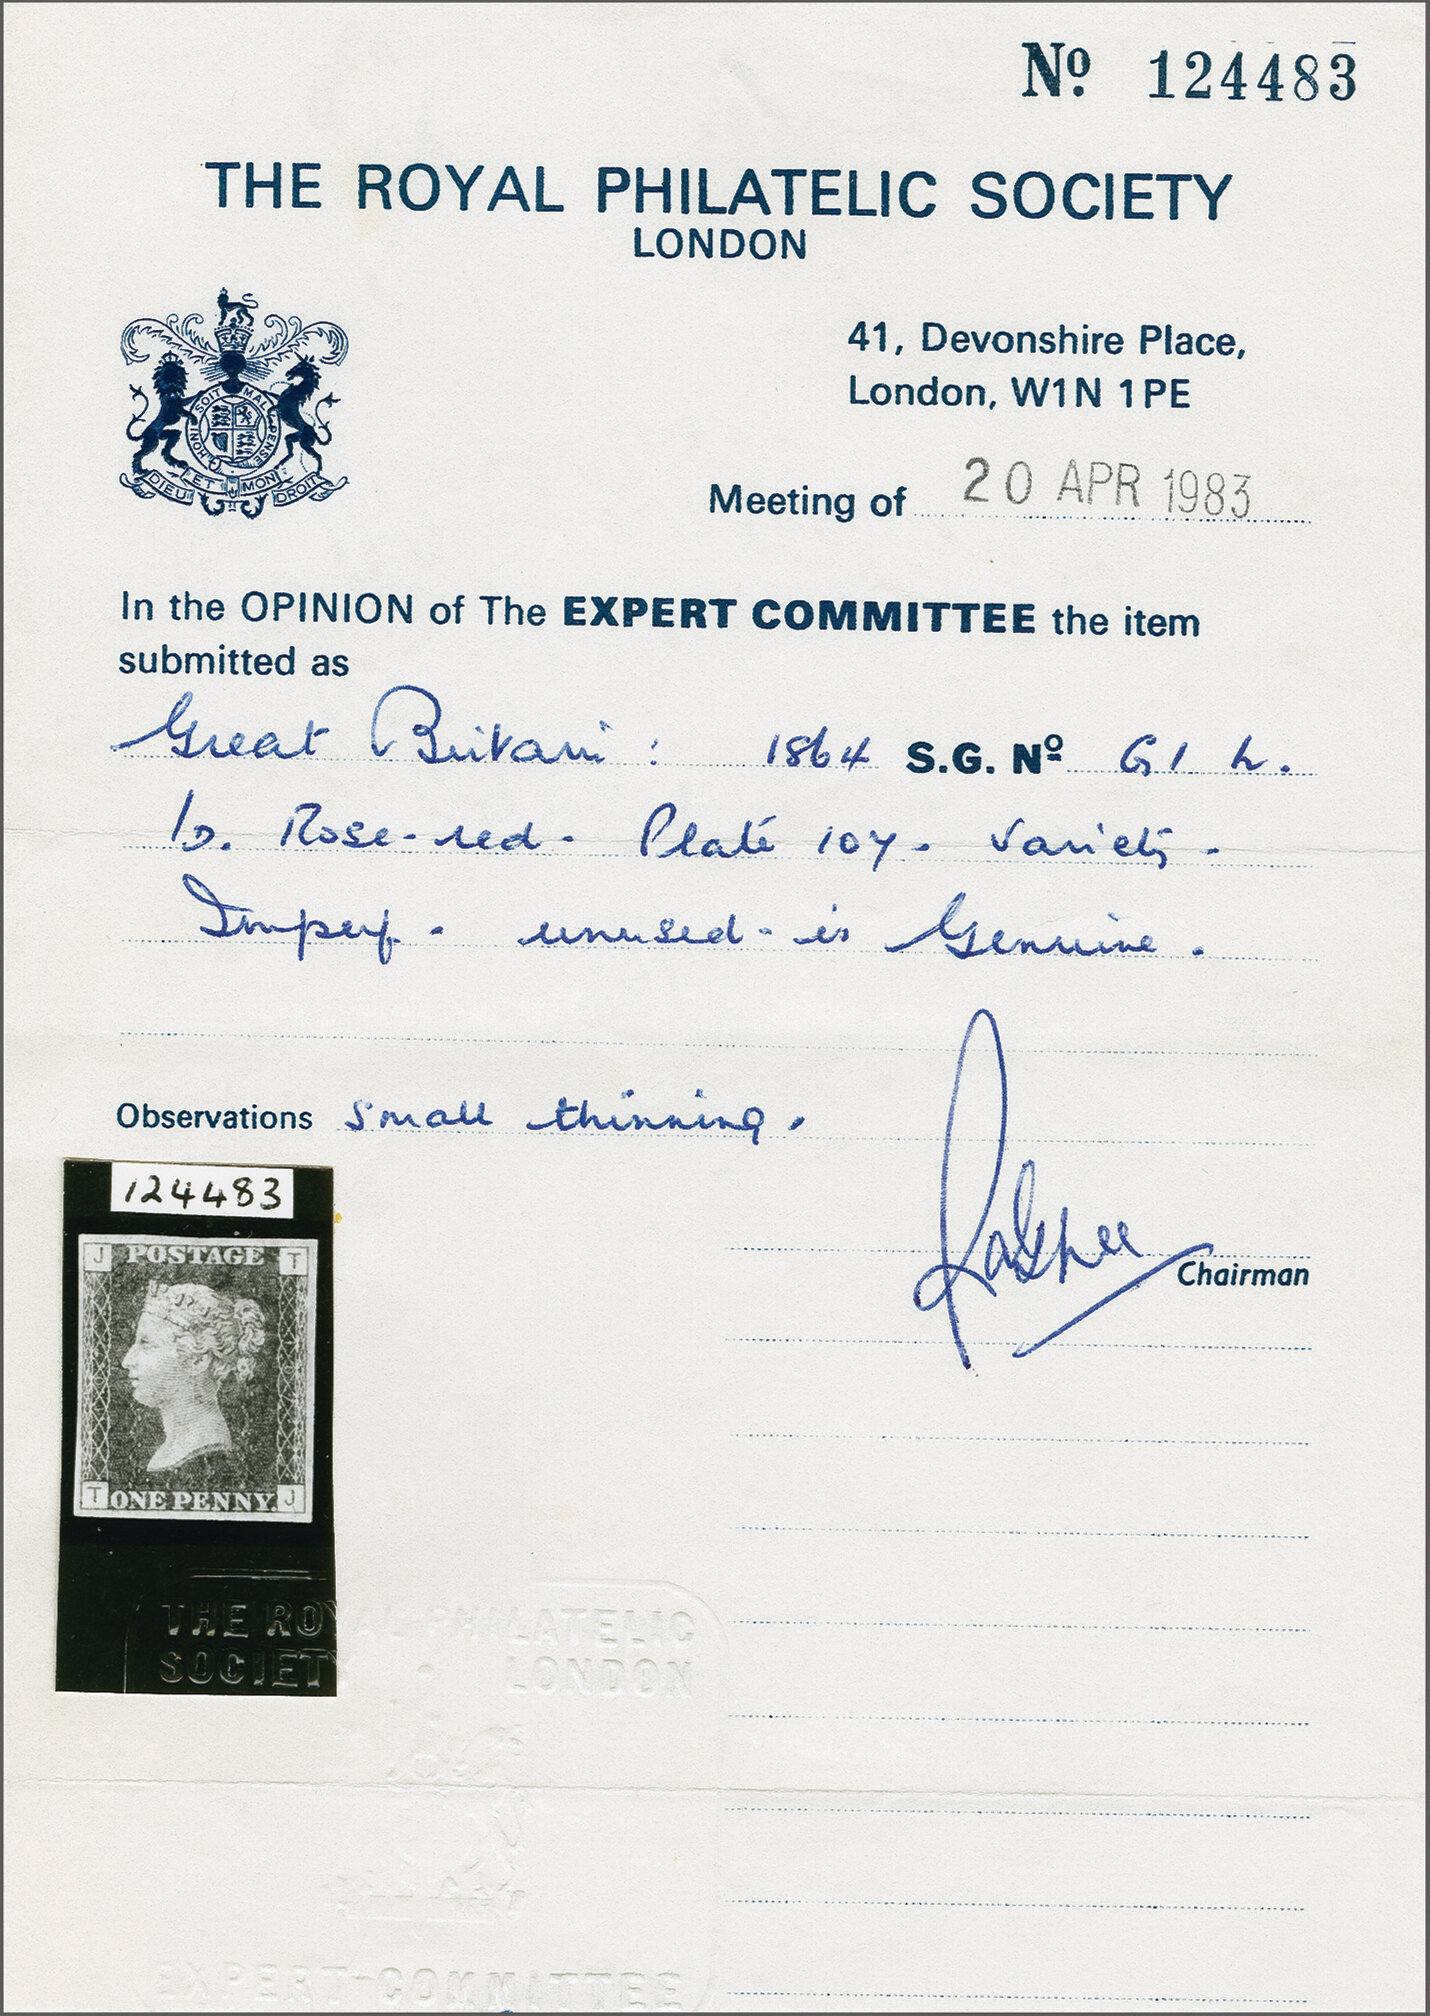 Nº 124483
THE ROYAL PHILATELIC SOCIETY
LONDON
HONI SOIT MAL PENSE
DIEU ET MON DROIT
41, Devonshire Place,
London, W1N 1PE
Meeting of 20 APR 1983
In the OPINION of The EXPERT COMMITTEE the item
submitted as
Great Britain: 1864 S.G. Nº G1
1D. Rose-red- Plate 107- variety-
Imperf- unused- is Genuine.
Observations Small thinning.
Chairman
124483
J POSTAGE T
T ONE PENNY. J
THE ROYAL PHILATELIC
SOCIETY LONDON
EXPERT COMMITTEE